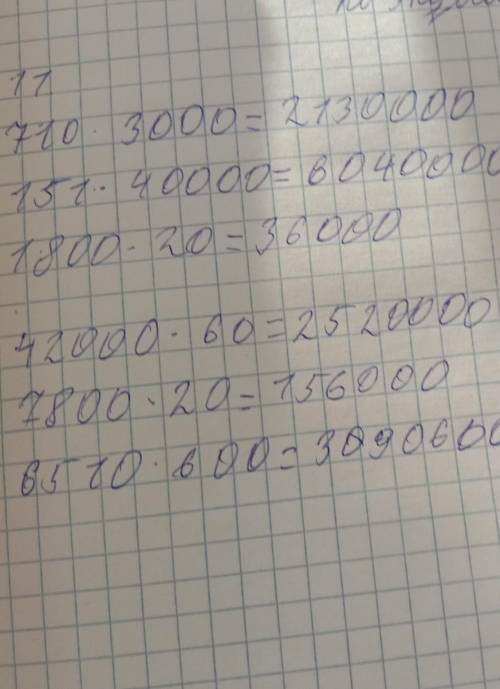 11
710 · 3000 = 2130000
151 · 40000 = 6040000
1800 · 20 = 36000
42000 · 60 = 2520000
7800 · 20 = 156000
6510 · 600 = 3090600